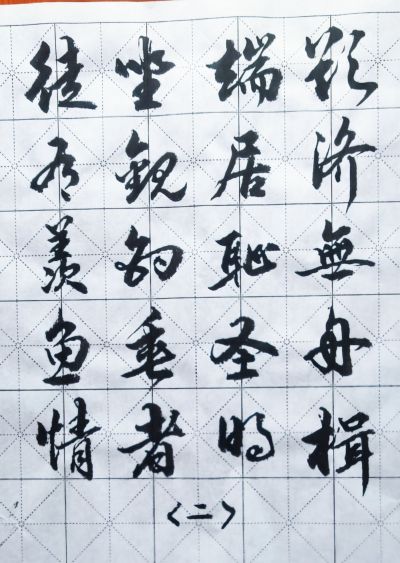 欲济無舟楫
端居耻圣明
坐觀钓垂者
徒有羡鱼情
<二>